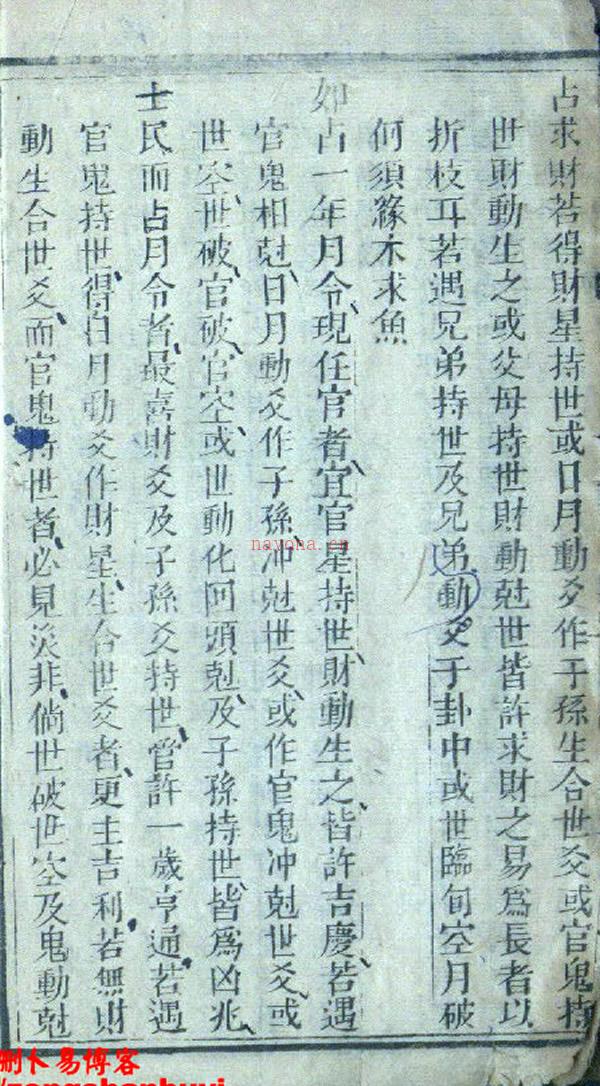 占求財若得財星持世或日月動爻作子孫生合世爻或官鬼持
世財動生之或父母持世財動尅世皆許求財之易爲長者以
折枝耳若遇兄弟持世及兄弟動爻于卦中或世臨旬空月破
何須緣木求魚
如占一年月令現任官者宜官星持世財動生之皆許吉慶若遇
官鬼相尅日月動爻作子孫冲尅世爻或作官鬼冲尅世爻或
世空世破官破官空或世動化回頭尅及子孫持世皆爲凶兆
士民而占月令者最喜財爻及子孫爻持世管許一歲亨通若遇
官鬼持世得日月動爻作財星生合世爻者更主吉利若無財
動生合世爻而官鬼持世者必見災非倘世破世空及鬼動尅
nayona.cn
刪卜易博客